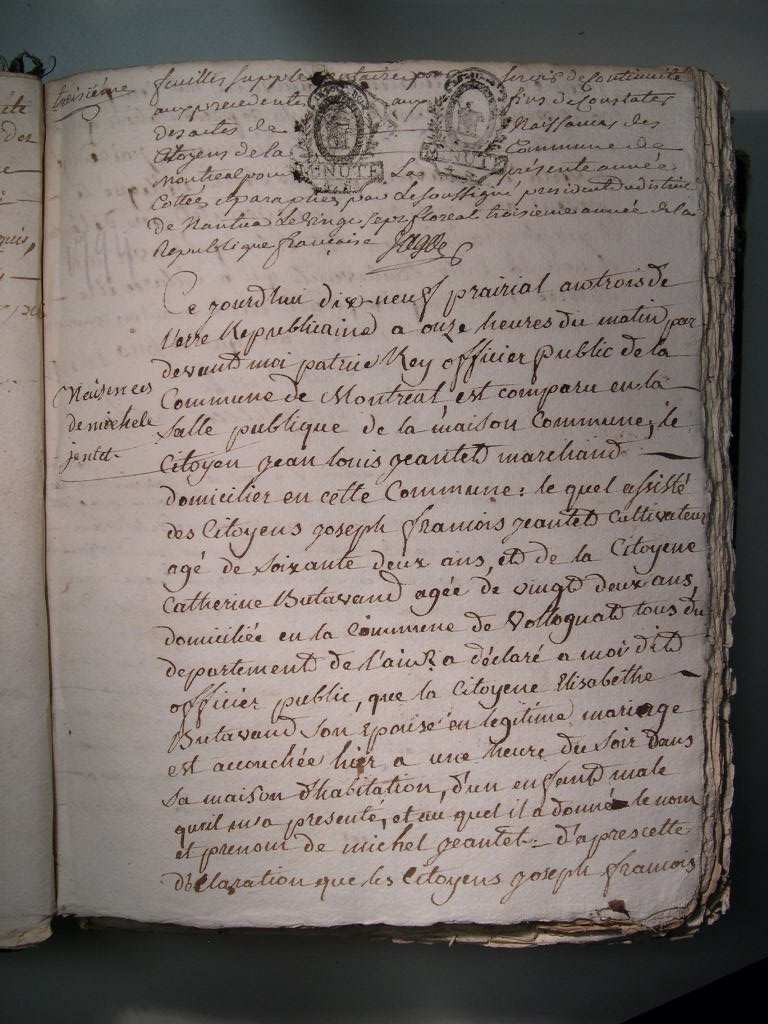 troisième
feuilles supplementaires pour servir de Continuité
aux precedente aux fins de Constater
des actes de Naissances des
Citoyens de la Commune de
Montreal pour La présente année
Cottées et paraphées par Le Soussigné president du district
de Nantua Le vingt sept floreal troisieme année de la
Republique françoise
MINUTE
Ce jourd'hui dix-neuf prairial an trois de
l'erre Republicaine a onze heures du matin, par
devant moi patrice Rey officier public de la
Commune de Montreal est comparu en la
Salle publique de la maison Commune, le
Citoyen jean louis jeantet marchand
domicilier en cette Commune: le quel assisté
des Citoyens joseph framois jeantet Cultivateur
agé de soixante deux ans, et de la Citoyene
Catherine Butavand agée de vingt deux ans,
domiciliée en la Commune de Vologuat tous du
departement de l'ain, a déclaré a moi dit
officier public, que la Citoyene Elisabethe
Butavand son Epouse en légitime mariage
est accouchée hier a une heure du soir dans
Sa maison d'habitation, d'un enfant male
qu'il m'a presenté, et au quel il a donné le nom
et prenom de michel jeantet. d'après cette
déclaration que les Citoyens joseph framois
Naisences
de michele
jentet